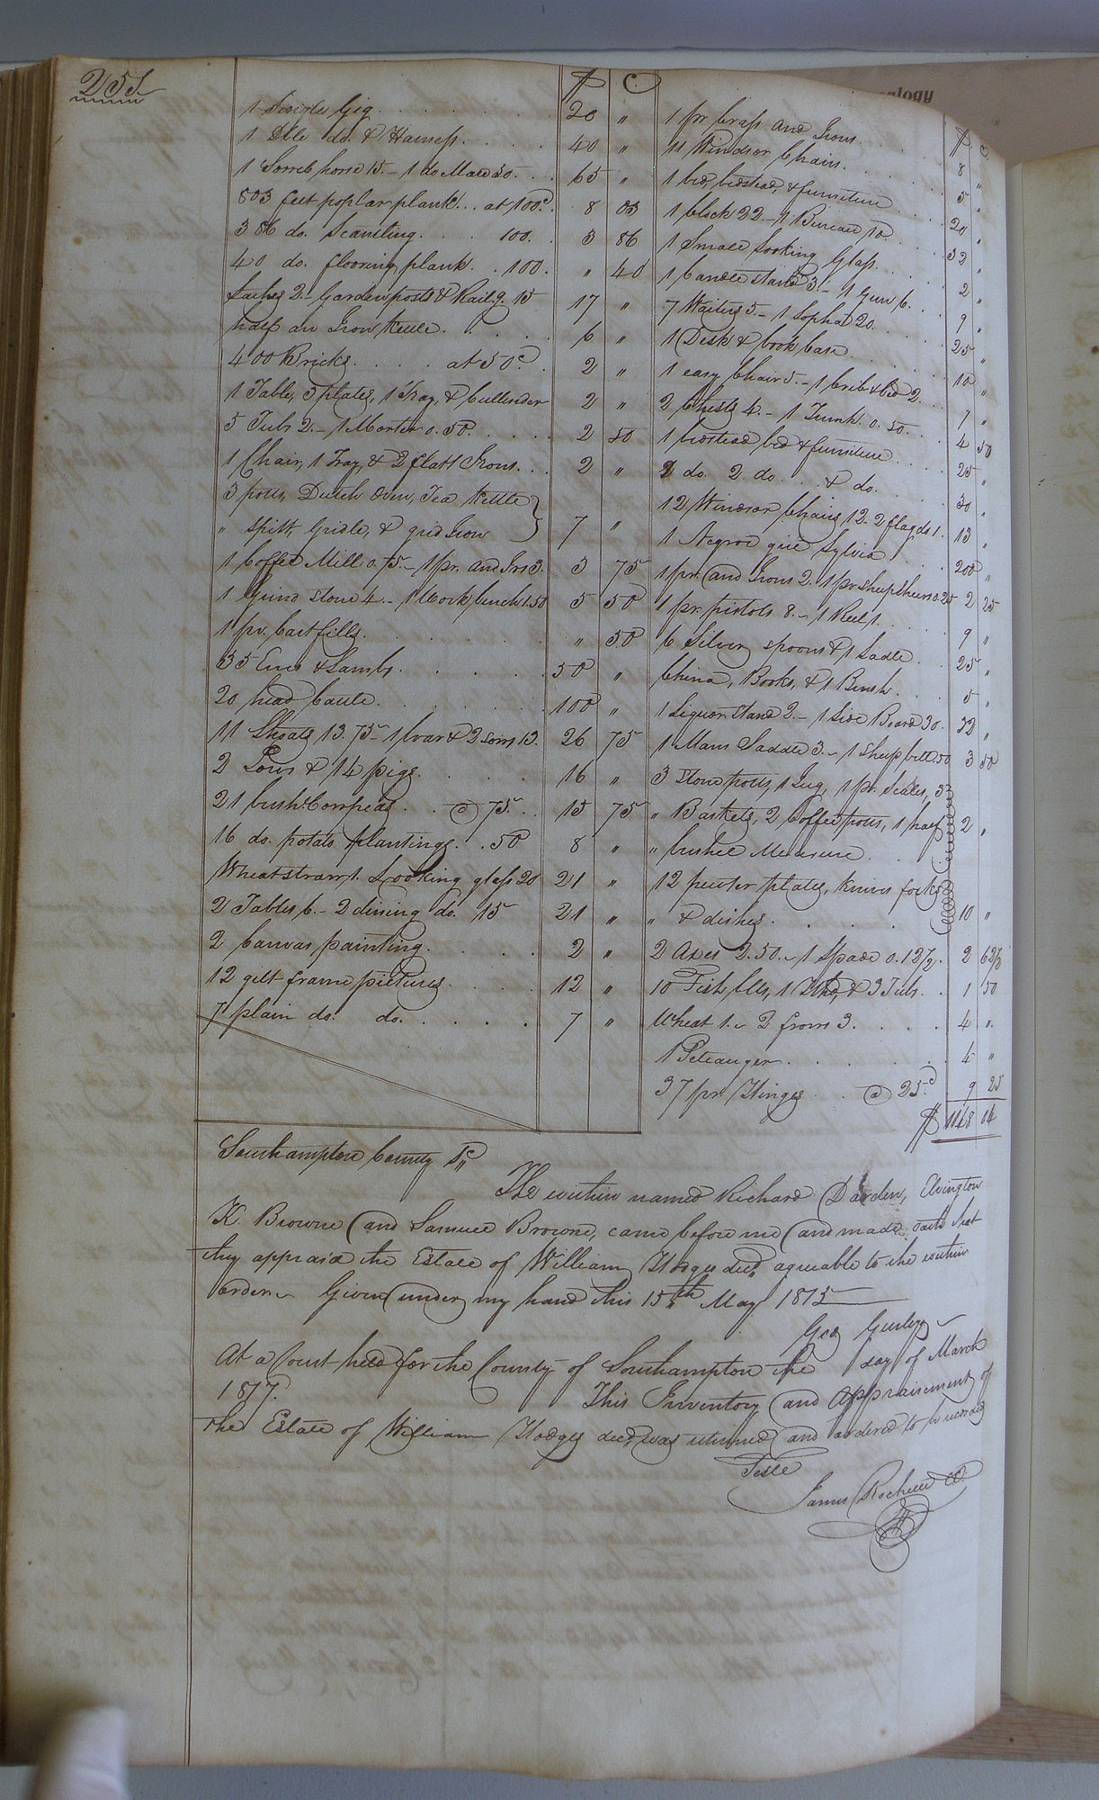 251
$ C
1 Single Gig . . . 20 "
1 Dble do. & Harness . . . 40 "
1 Sorrel horse 15 – 1 do Mare 50 . . 65 "
803 feet poplar plank . . at 100c. 8 03
386 do. Scantling . . . 100. . 3 86
40 do. flooring plank . . 100 . " 40
Sashes 2 – Garden posts & Railg. 15 17 "
half an Iron Kettle . . . 6 "
400 Bricks . . . . at 50c. . 2 "
1 Table, 3 plates, 1 Tray, & Cullender 2 "
5 Tubs 2. – 1 Morter 0.50 . . . 2 50
1 Chair, 1 Tray, & 2 flatt Irons . . . 2 "
3 potts, Dutch Oven, Tea Kettle
" Spitt, Gridle, & grid Iron 7 "
1 Coffee Mill 0.75 – 1 pr. And Irs 3. 3 75
1 Grind Stone 4. – 1 Work bench 1.50 5 50
1 pr. Cart fills . . . " 50
35 Ews & Lambs . . . 50 "
20 head Cattle . . . 100 "
11 Shoats 13.75 – 1 boar & 2 sows 13. 26 75
2 Sows & 14 pigs . . . 16 "
21 bush. Cornpeas . . @ 75 . . 15 75
16 do. potato plantings . . 50 8 "
Wheat straw 1. Looking glass 20 21 "
2 Tables 6. – 2 dining do. 15 21 "
2 Canvas painting . . . 2 "
12 gilt frame pictures . . . 12 "
7 plain do. do. . . . 7 "
$ C
1 pr brass And Irons . . . 8 "
11 Windsor Chairs . . . 5 "
1 bed, bedstead, & furniture . . . 20 "
1 Clock 22 – 1 Bureau 10 . . . 32 "
1 Small Looking Glass . . . 2 "
1 Candle stand 3. – 1 Gun 6. . . 9 "
7 Waiters 5. – 1 Sopha 20 . . . 25 "
1 Desk & book Case . . . 10 "
1 easy Chair 5. – 1 Crib & bed 2 . . . 7 "
2 Chests 4. – 1 Trunk 0.50 . . . 4 50
1 bedstead bed & furniture . . . 25 "
2 do. 2 do. . . & do. . . . 30 "
12 Windsor Chairs 12. 2 flag do 1. 13 "
1 Negroe girl Sylvia . . . 200 "
1 pr. And Irons 2. 1 pr sheep shears 0.25 2 25
1 pr. pistols 8. – 1 Reel 1. . . . 9 "
6 Silver spoons & 1 Ladle . . 25 "
China, Books, & 1 Brush . . . 5 "
1 Liquor Stand 2. – 1 Side Board 30. 32 "
1 Mans Saddle 3. – 1 sheep bell 50 3 50
3 Stone potts, 1 Jug, 1 pr. Scales, 3
" Baskets, 2 Coffee potts, 1 half 2 "
" bushel Measure . .
12 pewter plates, knives forks
" & dishes . . . 10 "
2 Axes 2.50. – 1 Spade 0.12½ . 2 62½
10 Fish , 1 , & 3 Tubs . . 1 50
Wheat 1. – 2 frows 3. . . . 4 "
1 . . . 4 "
37 pr. Hinges . . @ 25c. 9 25
$ 1148 14
Southampton County Sc
The within named Richard Darden, Elvington
K Browne and Samuel Browne, came before me and made oath that
they appraisd the Estate of William Hodges decd. agreable to the within
order – Given under my hand this 15th May 1815
Geo Gurley
At a Court held for the County of Southampton the day of March
1817. This Inventory and Appraisement of
the Estate of William Hodges decd. was returned and ordered to be recorded
Teste
James Rochelle CC.